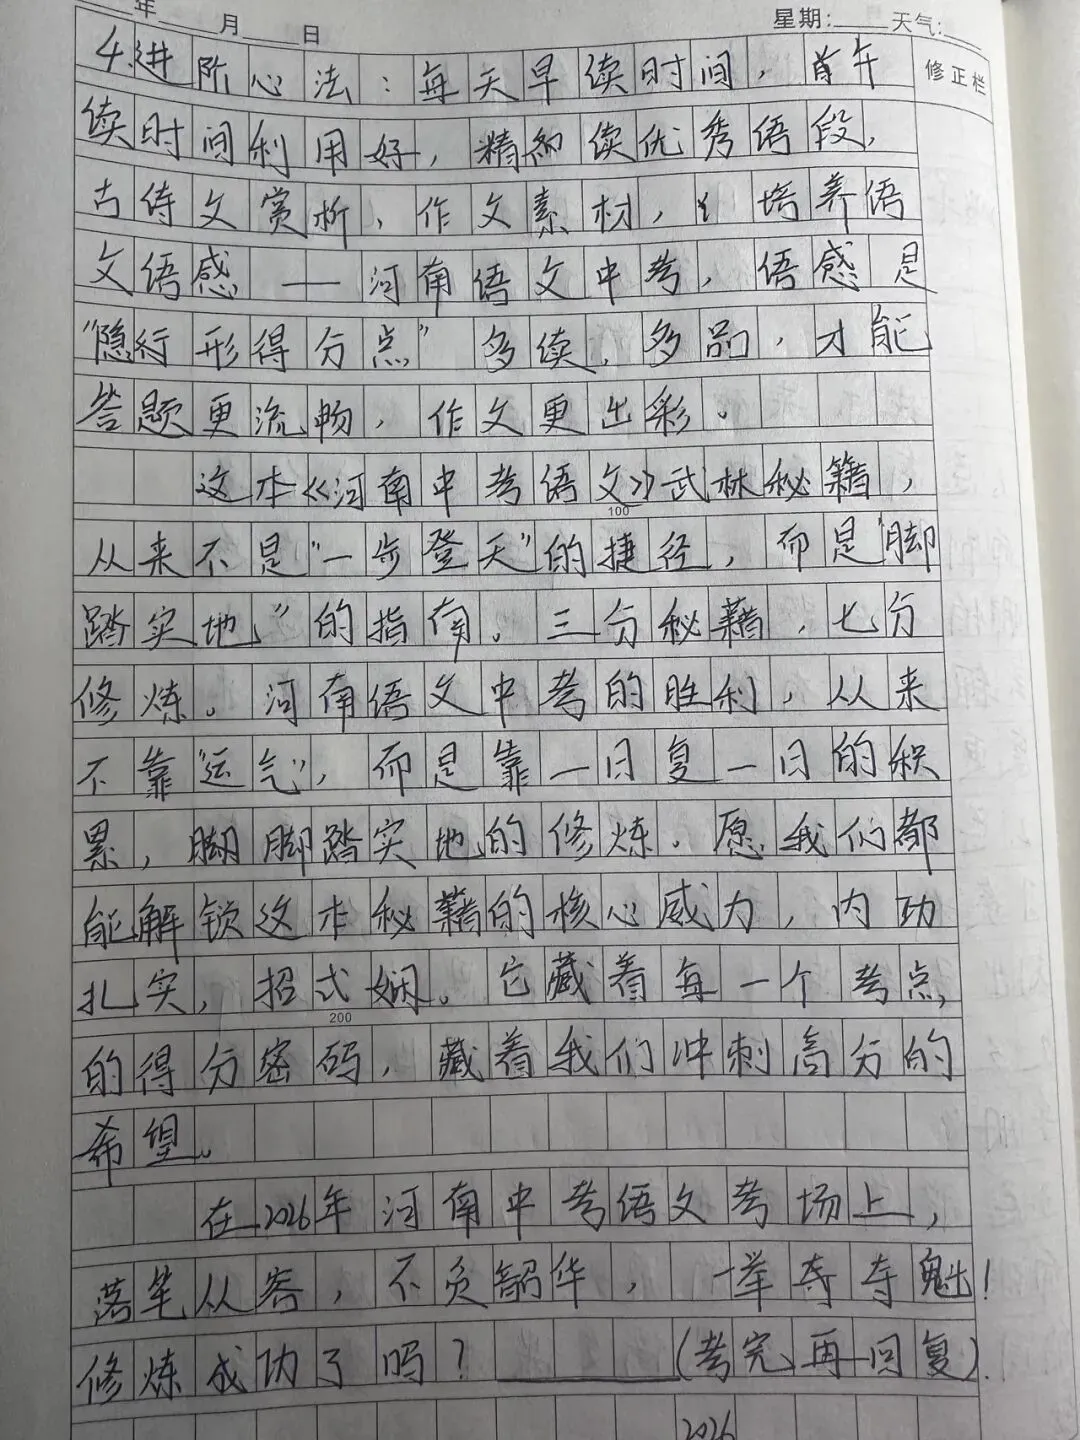 年 月 日 星期: 天气:
4.进阶心法：每天早读时间，首午 修正栏
读时间利用好，精细读优秀语段，
古诗文赏析，作文素材，培养语
文语感——河南语文中考，语感是
“隐行形得分点”多读，多品，才能
答题更流畅，作文更出彩。
这本《河南中考语文》武林秘籍，
100
从来不是“一步登天”的捷径，而是“脚
踏实地”的指南。三分秘籍，七分
修炼。河南语文中考的胜利，从来
不靠“运气”，而是靠一日复一日的积
累，脚脚踏实地的修炼。愿我们都
能解锁这本秘籍的核心威力，内功
扎实，招式娴。它藏着每一个考点
200
的得分密码，藏着我们冲刺高分的
希望。
在2026年河南中考语文考场上，
落笔从容，不负韶华，一举夺夺魁！
修炼成功了吗？______（考完再回复）.
2026